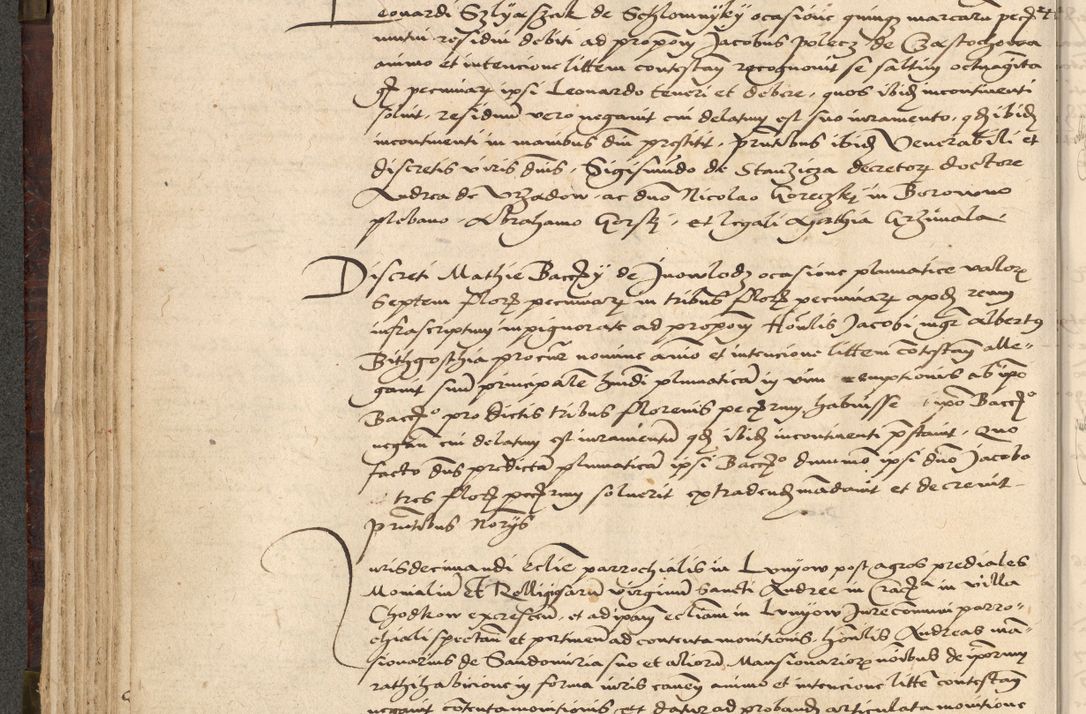 Leonardi Szlyaszak de Schlomnyky ocasione quinq marcaru pecz
mutui residui debiti ad propom Jacobus Polecz de Czastochowa
animo et intencione littem contestan recognouit se saltim octuaginta
gr pecuniar ipsi Leonardo teneri et debere, quos ibid incontinenti
soluit, residuum vero negauit cui delatum est suo iuramento, qd ibid
incontinenti in manibus dni prestitit, Pntibus ibid Venerabili et
discretis viris dnis, Sigismundo de Stanzicza decretor doctore
Andrea de Vrzadow, ac dno Nicolao Goreczky in Borowno
plebano, Abrahamo Gorsky, et legali Mathia Grzimala
Discreti Mathie Bacz de Jnowlodz ocasione plumatice valor
Septem flor pecuniar in tribus flor pecuniar apd reum
infrascriptum inpignorate ad propom Honlis Jacobi mgr Albertus
Bithgosthia procur nomine animo et intencione littem contestan alle-
gauit suu principale hmdi plumatica in vim emptionis ab ipo
Bacz pro dictis tribus florenis peczrum habuisse, ipo Bacz
negan cui delatum est iuramentu qd ibid incontinenti pstauit, Quo
facto dns predicta plumatica ipsi Bacz dummo ipsi dno Jacobo
tres flor peczrum soluerit extradend madauit et decreuit
Pntibus Norys
Jurisdecimandi Eclie parrochialis in Lunyow post agros prediales
Monialiu Et Relligiosaru virginu Sancti Andree in Craca in villa
Chodkow excrescen, et ad ipam eccliam in Lunyow Jure communi parro-
chiali spectan et pertinen ad contenta monitionis, honlis Andreas man-
sionarius de Sandomiria suo et alioru Mansionarior noibus de iporum
rathihabicione in forma iuris cauen animo et intencione litte contestan
negauit contenta monitionis, et datur ad proband articulata monitione